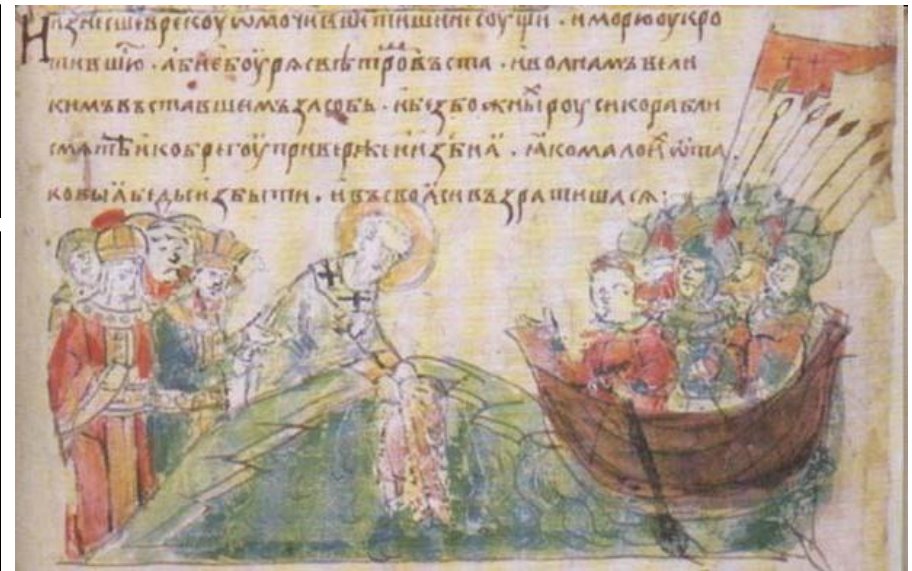 Изнесшеврекоуѡмочивше тишинесоущи · иморюоукро
тившюⷭ · абиебоурѧсвѣтромъвъста · иволнамъвели
кимъвъставшемъзасобь · ибезбожныⷯроусикорабли
смѧтѣикобрегоупривержеиизбиꙗ · ꙗкомалоиⷯѿта
ковыꙗбедыизбыти · ивъсвоꙗсивъзратишасѧ: